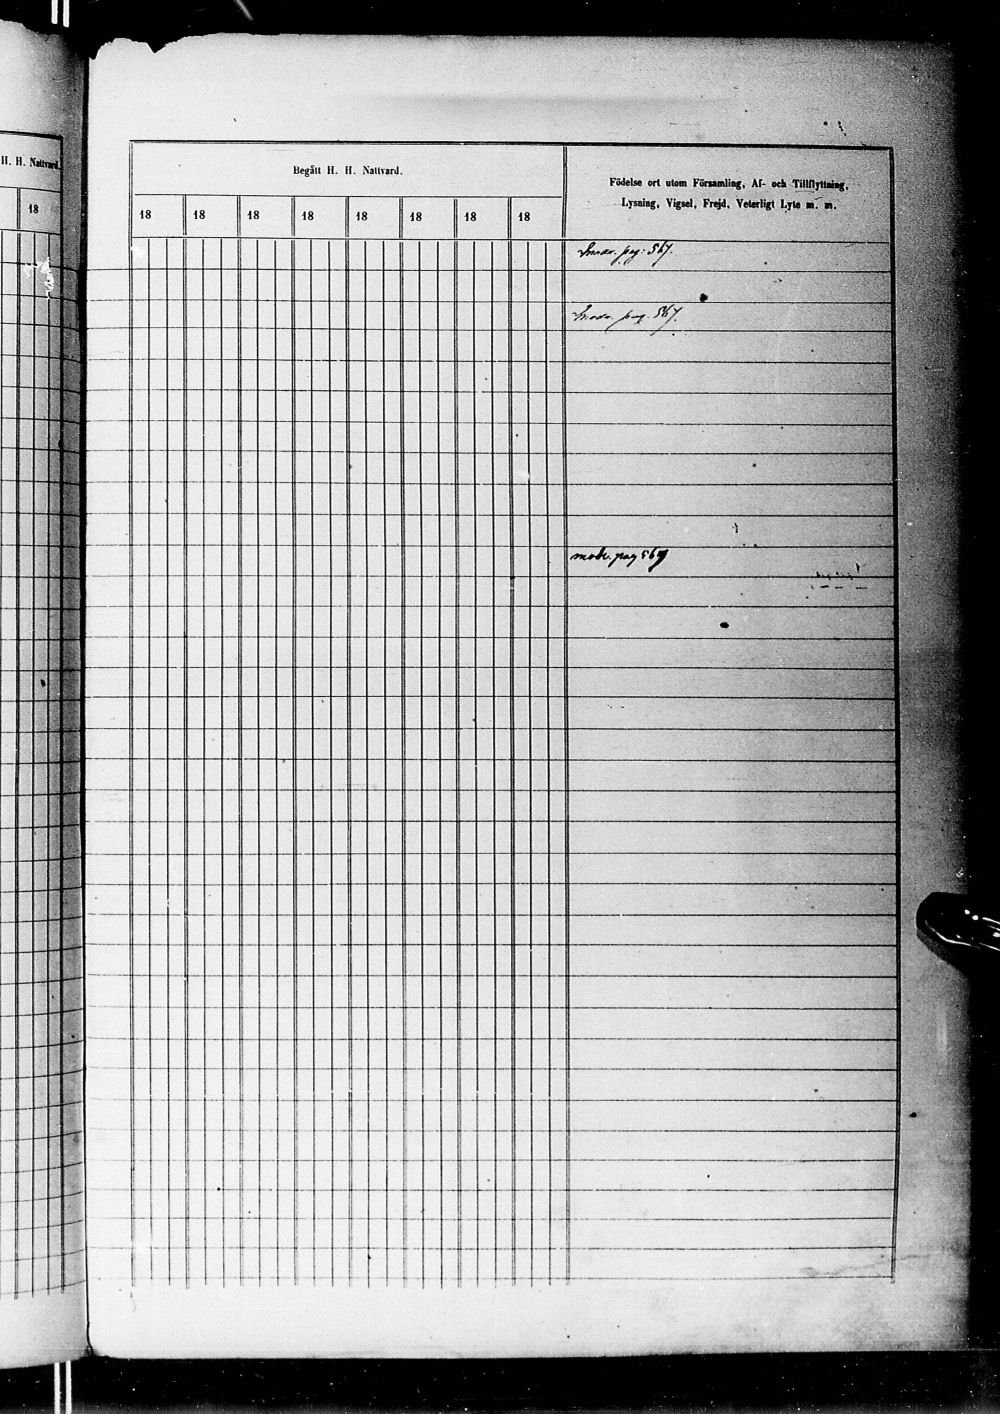 H. H. Nattvard.
18
Begått H. H. Nattvard.
Födelse ort utom Församling, Af- och Tillflyttning,
Lysning, Vigsel, Frejd, Veterligt Lyte m. m.
18 18 18 18 18 18 18 18
pag. 567.
pag. 567.
pag 567